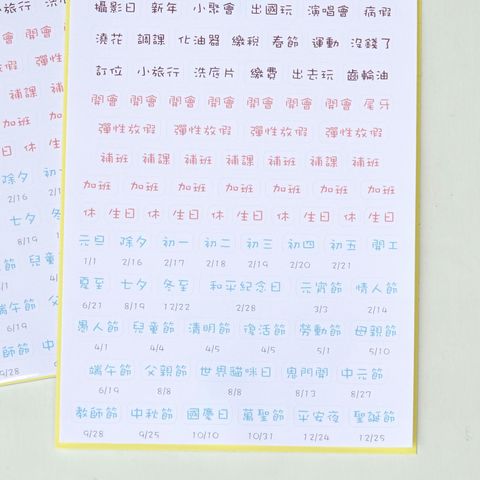 攝影日 新年 小聚會 出國玩 演唱會 病假
澆花 調課 化油器 繳稅 春節 運動 沒錢了
訂位 小旅行 洗底片 繳費 出去玩 齒輪油
開會 開會 開會 開會 開會 開會 開會 尾牙
彈性放假 彈性放假 彈性放假 彈性放假
補班 補課 補班 補課 補課 補班
加班 加班 加班 加班 加班 加班
休 生日 休 生日 休 生日 休 生日 休 生日
元旦 除夕 初一 初二 初三 初四 初五 開工
1/1 2/16 2/17 2/18 2/19 2/20 2/21
夏至 七夕 冬至 和平紀念日 元宵節 情人節
6/21 8/19 12/22 2/28 3/3 2/14
愚人節 兒童節 清明節 復活節 勞動節 母親節
4/1 4/4 4/5 4/5 5/1 5/10
端午節 父親節 世界貓咪日 鬼門開 中元節
6/19 8/8 8/8 8/13 8/27
教師節 中秋節 國慶日 萬聖節 平安夜 聖誕節
9/28 9/25 10/10 10/31 12/24 12/25
小旅行 洗
開會 開
彈性
補課 補
加班
日 休 生
除夕 初一
2/16 2/1
七夕 冬
8/19
節 兒童
端午節 父
6/19
師節 中
9/28